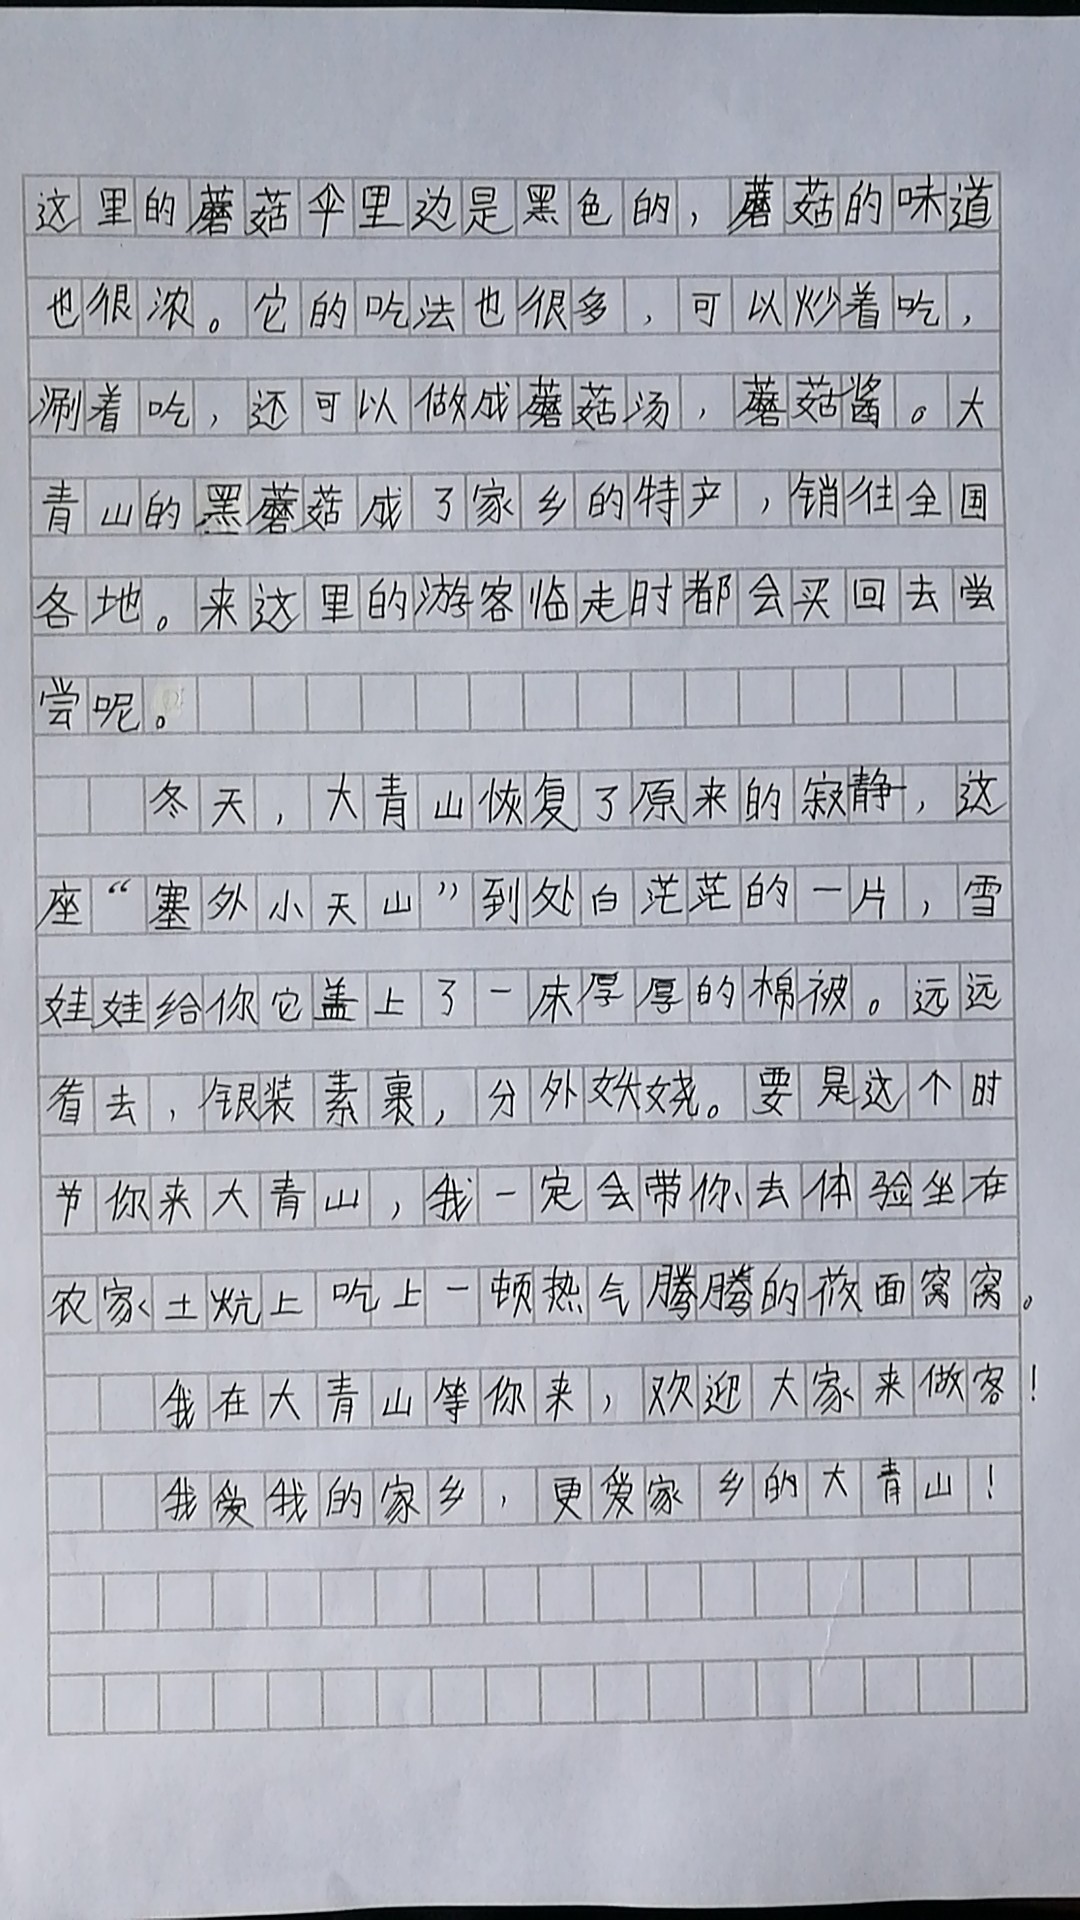 这里的蘑菇伞里边是黑色的，蘑菇的味道
也很浓。它的吃法也很多，可以炒着吃，
涮着吃，还可以做成蘑菇汤，蘑菇酱。大
青山的黑蘑菇成了家乡的特产，销往全国
各地。来这里的游客临走时都会买回去尝
尝呢。
冬天，大青山恢复了原来的寂静，这
座“塞外小天山”到处白茫茫的一片，雪
娃娃给你它盖上了一床厚厚的棉被。远远
看去，银装素裹，分外妖娆。要是这个时
节你来大青山，我一定会带你去体验坐在
农家土炕上吃上一顿热气腾腾的莜面窝窝。
我在大青山等你来，欢迎大家来做客！
我爱我的家乡，更爱家乡的大青山！